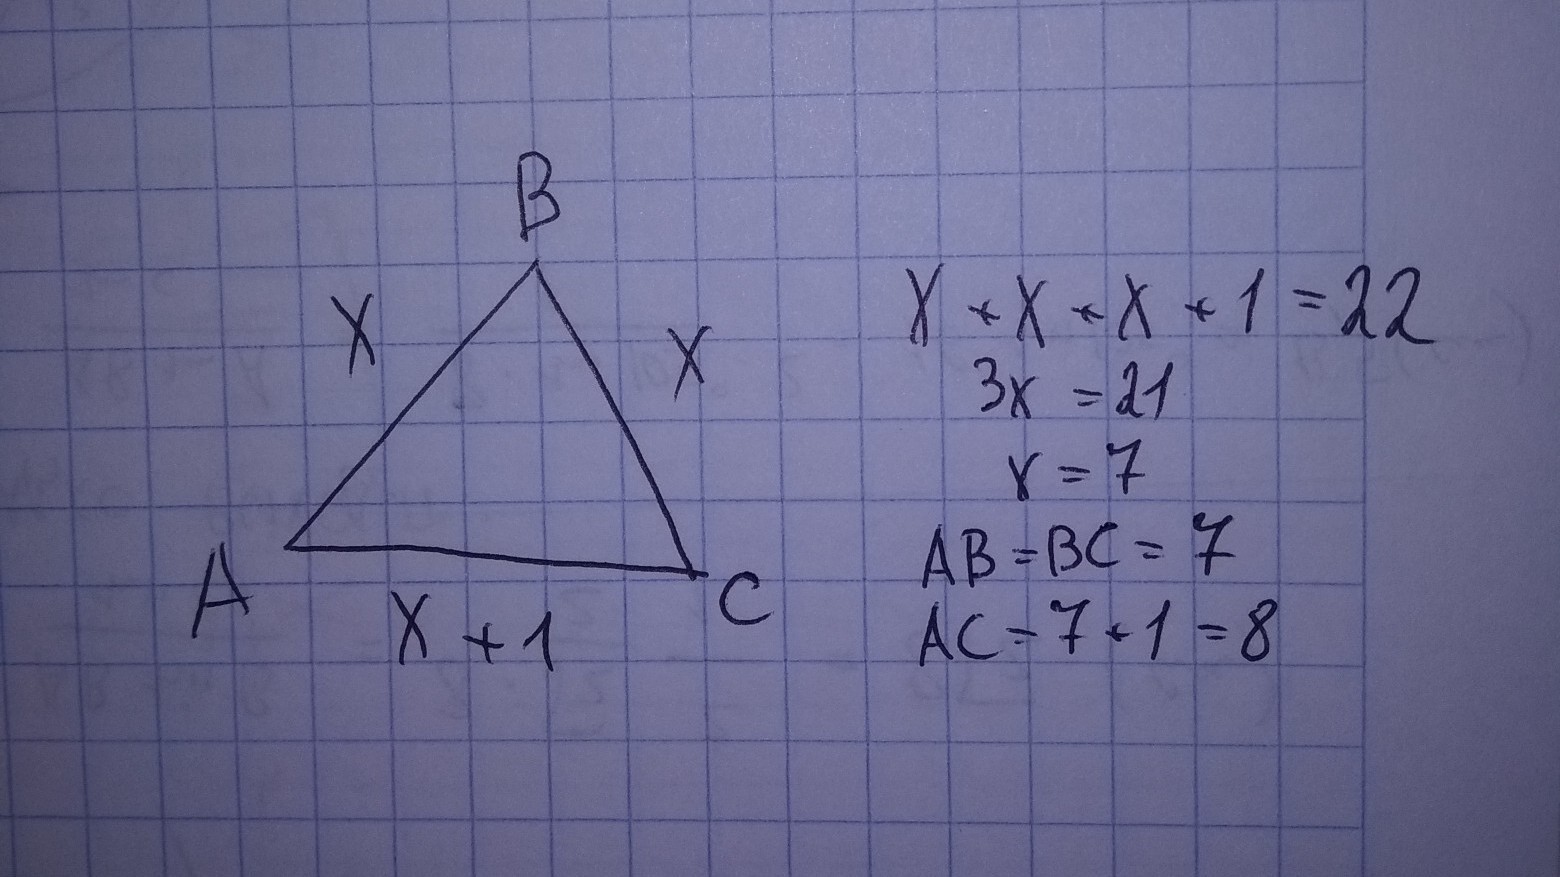 B
X
X
A
C
X + 1
X + X + X + 1 = 22
3x = 21
x = 7
AB = BC = 7
AC = 7 + 1 = 8